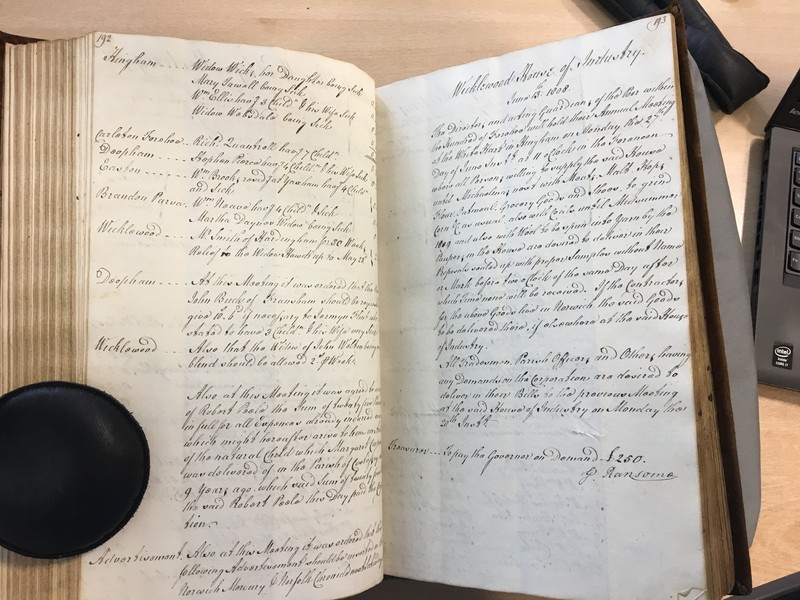 192
Hingham Widow Wicks, her Daughter being Sick
Mary Tawell being Sick
Wm Ellis hav'g 3 Childn & his Wife Sick
Widow being Sick
Carleton Forehoe Richd Quantrell hav'g 7 Childn
Deopham Stephen Pierce hav'g 4 Childn & his Wife Sick
Easton Wm Brooks resid'g at Yaxham hav'g 4 Childn
and Sick
Brandon Parva Wm hav'g 4 Childn & Sick
Martha Daynes Widow being Sick
Wicklewood Mr Smith of Hardingham for 30 Weeks
Relief to the Widow Howes up to May 28
Deopham At this Meeting it was ordered that
John Buck of Fransham should be
give 10.6 if necessary to
stated to have 3 Childn & his Wife very Sick
Wicklewood Also that the Widow of John
blind should be allowed 2s p Week
Also at this Meeting it was agreed
of Robert Poole the Sum of twenty
in full for all Expences already incurred
which might hereafter arise to
of the natural Child which Margaret
was delivered of in the Parish of
9 Years ago, which said Sum of twenty
the said Robert Poole this Day paid the
tion.
Advertisement Also at this Meeting it was ordered that the
following Advertisement should be inserted in
Norwich Mercury & Norfolk Chronicle
193
Wicklewood House of Industry.
June 13th 1808.
The Directors and acting Guardians of the Poor within
the Hundred of Forehoe will hold their Annual Meeting
at the White Hart in Hingham on Monday the 27th
Day of June Inst at 11 o'Clock in the Forenoon
where all Persons willing to supply the said House
until Michaelmas next with Meat, Malt, Hops,
Flour, Oatmeal, Grocery Goods and Shoes, to grind
Corn &c as usual, also with Coals until Midsummer
1809 and also with Wool to be spun into Yarn by the
Paupers in the House are desired to deliver in their
Proposals sealed up with proper Samples without Name
or Mark before two o'Clock of the same Day after
which time none will be received. If the Contractors
for the above Goods live in Norwich the said Goods
to be delivered there, if elsewhere at the said House
of Industry.
All Tradesmen, Parish Officers, and Others, having
any Demands on the Corporation, are desired to
deliver in their Bills to the previous Meeting
at the said House of Industry on Monday the
20th Inst.
Treasurer To pay the Governor on Demand £250.
J. Ransome
intel